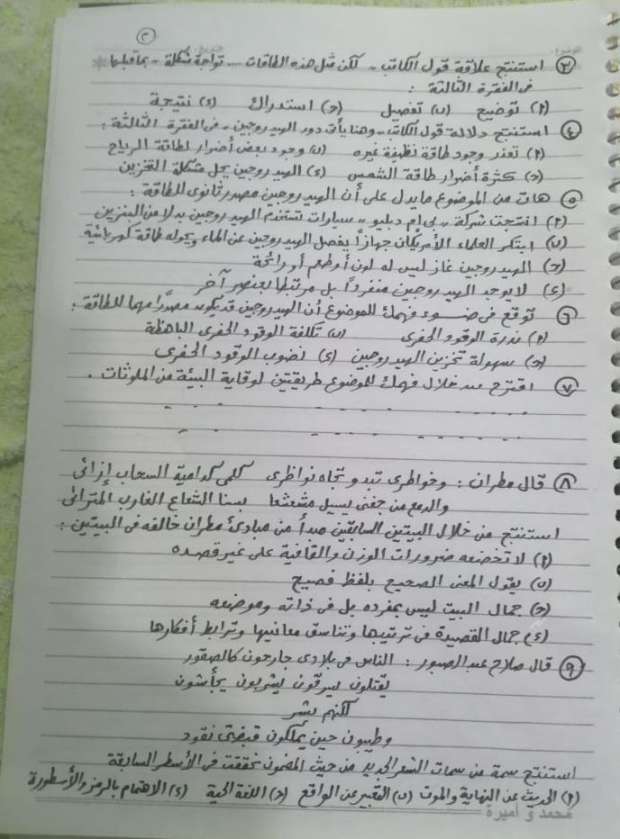 ٣
٣ استنتج علاقة قول الكاتب "لكن مثل هذه الطاقات .... تواجه مشكلة" بما قبلها
فى الفقرة الثالثة :
(٢) توضيح (ب) تفصيل (ج) استدراك (د) نتيجة
٤ استنتج دلالة قول الكاتب "وهنا يأتى دور الهيدروجين" فى الفقرة الثالثة :
(٢) تعذر وجود طاقة نظيفة غيره (ب) وجود بعض أضرار لطاقة الرياح
(ج) كثرة أضرار طاقة الشمس (د) الهيدروجين يحل مشكلة التخزين
٥ هات من الموضوع ما يدل على أن الهيدروجين مصدر ثانوى للطاقة :
(٢) انتجت شركة "بى ام دبليو" سيارات تستخدم الهيدروجين بدلا من البنزين
(ب) ابتكر العلماء الأمريكان جهازاً يفصل الهيدروجين عن الماء ويحوله طاقة كهربائية
(ج) الهيدروجين غاز ليس له لون أو طعم أو رائحة
(د) لا يوجد الهيدروجين منفرداً بل مرتبطا بعنصر آخر
٦ توقع فى ضوء فهمك للموضوع أن الهيدروجين قد يكون مصدراً مهما للطاقة :
(٢) ندرة الوقود الحفرى (ب) تكلفة الوقود الحفرى الباهظة
(ج) سهولة تخزين الهيدروجين (د) نضوب الوقود الحفرى
٧ اقترح من خلال فهمك للموضوع طريقتين لوقاية البيئة من الملوثات .
٨ قال مطران : وخواطرى تبدو تجاه نواظرى كلمى كدامية السحاب إزائى
والدمع من جفنى يسيل مشعشعا بسنا الشعاع الغارب المترائى
استنتج من خلال البيتين السابقين مبدأ من مبادئ مطران خالفه فى البيتين :
(٢) لا تخضعه ضرورات الوزن والقافية على غير قصده
(ب) يقول المعنى الصحيح بلفظ فصيح
(ج) جمال البيت ليس بمفرده بل فى ذاته وموضعه
(د) جمال القصيدة فى ترتيبها وتناسق معانيها وترابط أفكارها
٩ قال صلاح عبد الصبور : الناس فى بلادى جارحون كالصقور
يقتلون يسرقون يشربون يجأشون
لكنهم بشر
وطيبون حين يملكون قبضتى نقود
استنتج سمة من سمات الشعر الجديد من حيث المضمون تحققت فى الأسطر السابقة
(٢) الحديث عن النهاية والموت (ب) التعبير عن الواقع (ج) اللغة الحية (د) الاهتمام بالرمز والأسطورة
محمد و أميرة